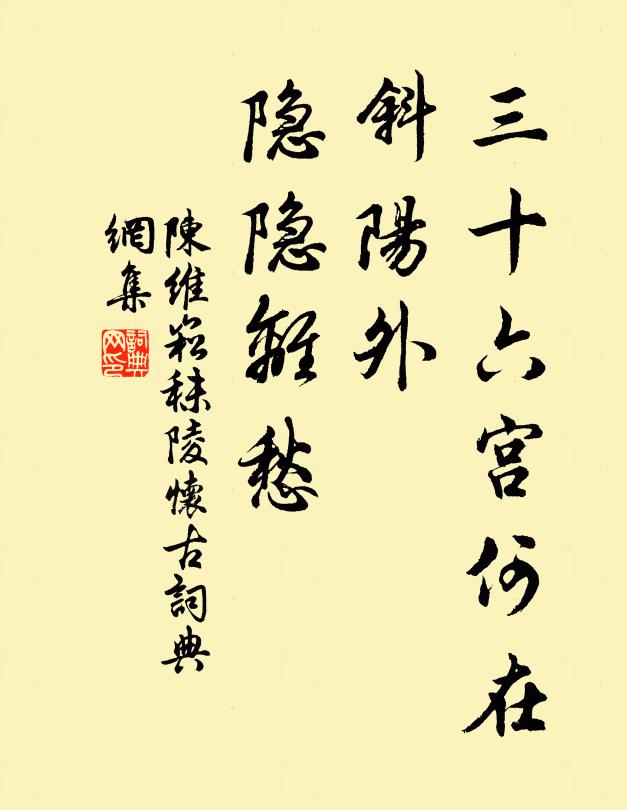 三十六宫何在
斜陽外
隐隐離愁
陳維崧秣陵懷古詞典
網集
詞典
网印